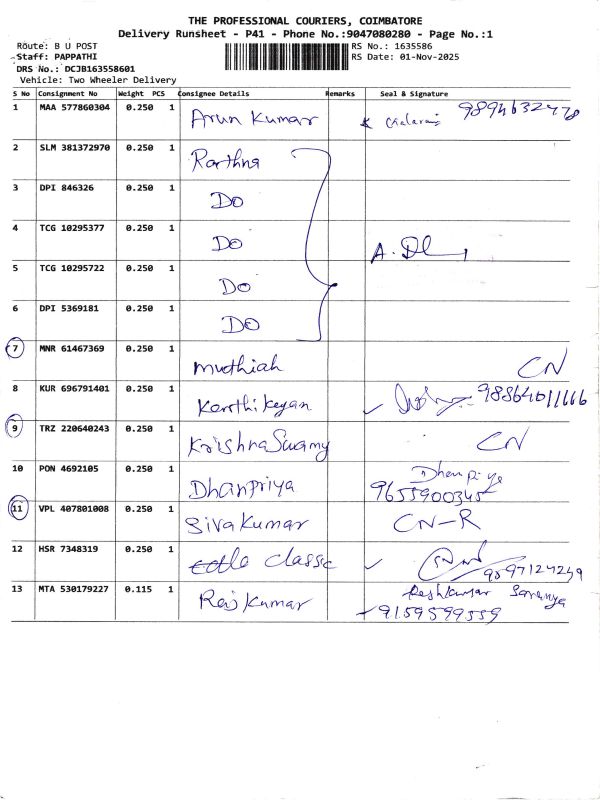 THE PROFESSIONAL COURIERS, COIMBATORE
Delivery Runsheet - P41 - Phone No.:9047080280 - Page No.:1
Route: B U POST
Staff: PAPPATHI
DRS No.: DCJB163558601
Vehicle: Two Wheeler Delivery
RS No.: 1635586
RS Date: 01-Nov-2025
S No Consignment No Weight PCS Consignee Details Remarks Seal & Signature
1 MAA 577860304 0.250 1 Arun Kumar
2 SLM 381372970 0.250 1 Rarthna
3 DPI 846326 0.250 1 Do
4 TCG 10295377 0.250 1 Do A.
5 TCG 10295722 0.250 1 Do
6 DPI 5369181 0.250 1 Do
7 MNR 61467369 0.250 1 muthiah CN
8 KUR 696791401 0.250 1 Karthikeyan
9 TRZ 220640243 0.250 1 KrishnaSwamy CN
10 PON 4692105 0.250 1 Dhanpriya Dhanpriya
9655900345
11 VPL 407801008 0.250 1 Sivakumar CN-R
12 HSR 7348319 0.250 1 classc
13 MTA 530179227 0.115 1 Rajkumar Saranya
9159599559